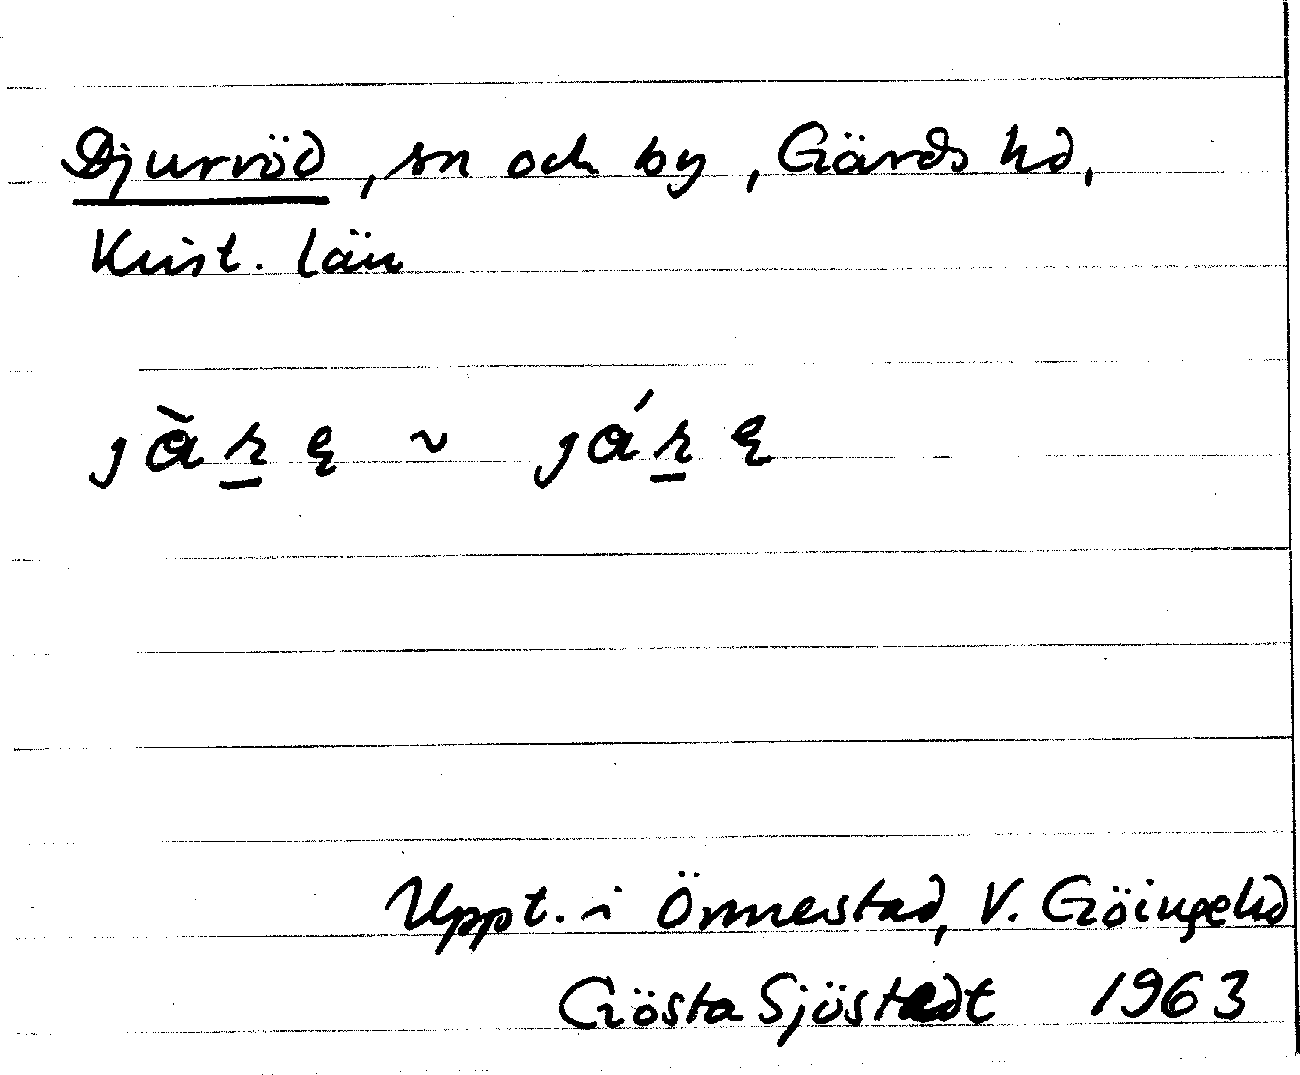 Djurröd, sn och by, Gärds hd,
Krist. län
jàr̲ę ~ jár̲ę
Uppt. i Önnestad, V. Göingehd
Gösta Sjöstedt 1963